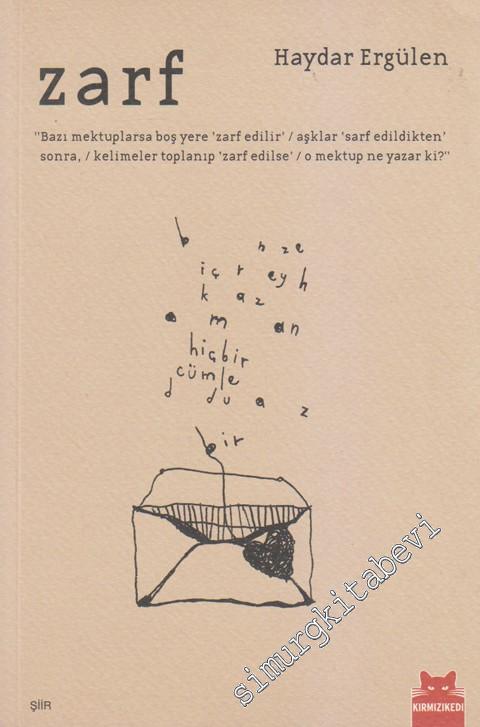 Haydar Ergülen
zarf
"Bazı mektuplarsa boş yere 'zarf edilir' / aşklar 'sarf edildikten'
sonra, / kelimeler toplanıp 'zarf edilse' / o mektup ne yazar ki?"
b n ze
içr eyh
k az
a m an
hiçbir
cümle
d du a z
bir
simurgkitabevi
ŞİİR
KIRMIZIKEDİ